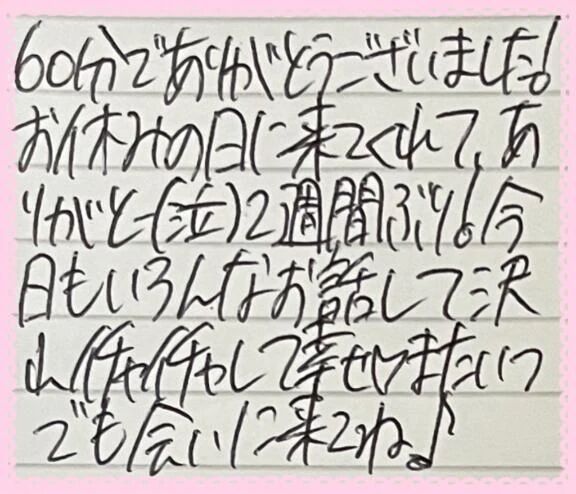 60分でありがとうございました!
お休みの日に来てくれて、あ
りがとー(泣)2週間ぶり!今
日もいろんなお話して沢
山イチャイチャして幸せいまたいつ
でも会いに来てね♪